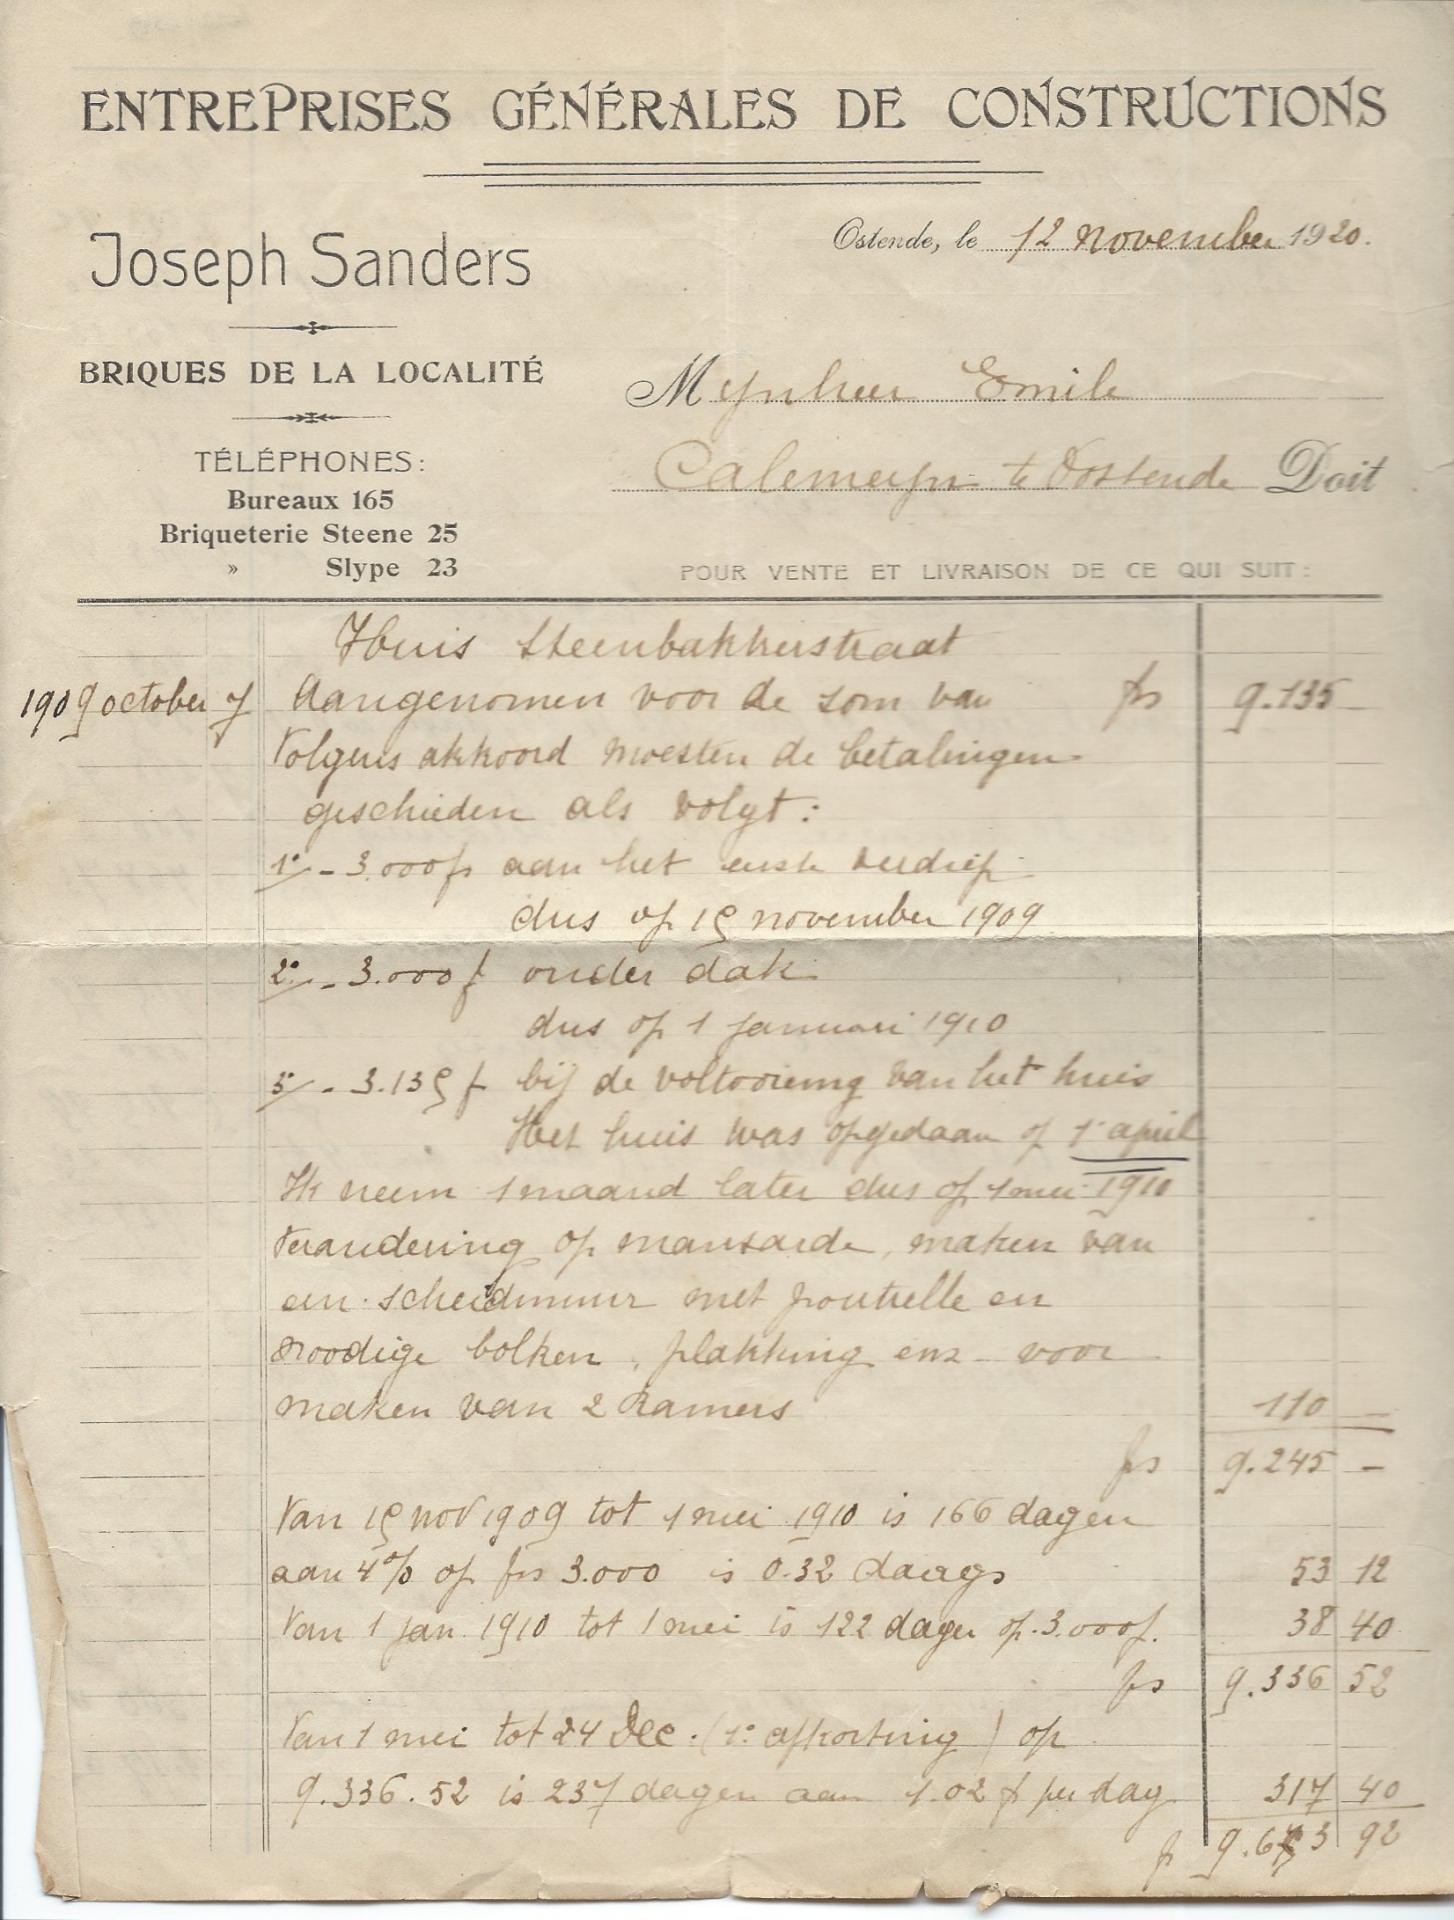 ENTREPRISES GÉNÉRALES DE CONSTRUCTIONS
Joseph Sanders
Ostende, le 12 november 1920.
BRIQUES DE LA LOCALITÉ
Mynheer Emile
Calemeyn te Oostende Doit
TÉLÉPHONES:
Bureaux 165
Briqueterie Steene 25
» Slype 23
POUR VENTE ET LIVRAISON DE CE QUI SUIT:
Huis Steenbakkerstraat
1909 october 7 Aangenomen voor de som van frs 9.135 —
Volgens akkoord moesten de betalingen
geschieden als volgt:
1° - 3.000 fr aan het eerste verdiep
dus op 15 november 1909
2° - 3.000 f onder dak
dus op 1 januari 1910
3° - 3.135 f bij de voltooiing van het huis
Het huis was opgedaan op 1 april
Ik neem 1 maand later dus op 1 mei 1910
Verandering op mansarde, maken van
een scheidmuur met poutrelle en
noodige bolken, plakking enz - voor
maken van 2 kamers 110 —
frs 9.245 —
Van 15 nov 1909 tot 1 mei 1910 is 166 dagen
aan 4% op frs 3.000 is 0.32 daags 53 12
Van 1 jan 1910 tot 1 mei is 122 dagen op 3.000 f. 38 40
frs 9.336 52
Van 1 mei tot 24 Dec. (1° afkorting) op
9.336.52 is 237 dagen aan 1.02 f per dag 317 40
fr 9.653 92